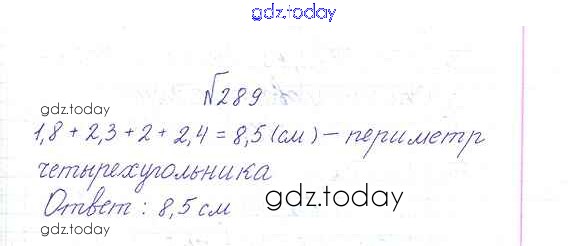 gdz.today
√289
gdz.today
1,8 + 2,3 + 2 + 2,4 = 8,5 (см) – периметр
четырехугольника
Ответ : 8,5 см
gdz.today
gdz.today